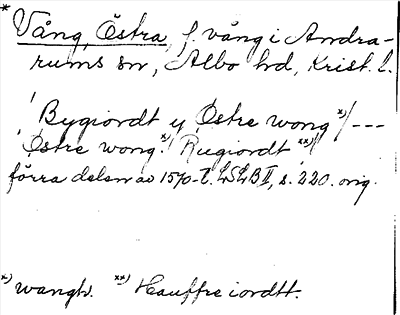 * Vång, Östra, f. vång i Andra-
rums sn, Albo hd, Krist. l.
'Bygiordt y Östre wong *)/---
Östre wong. *) Rugiordt **)/'
förra delen av 1570-t. LSLB II, s. 220. orig.
*) wangh. **) Hauffre iordtt.